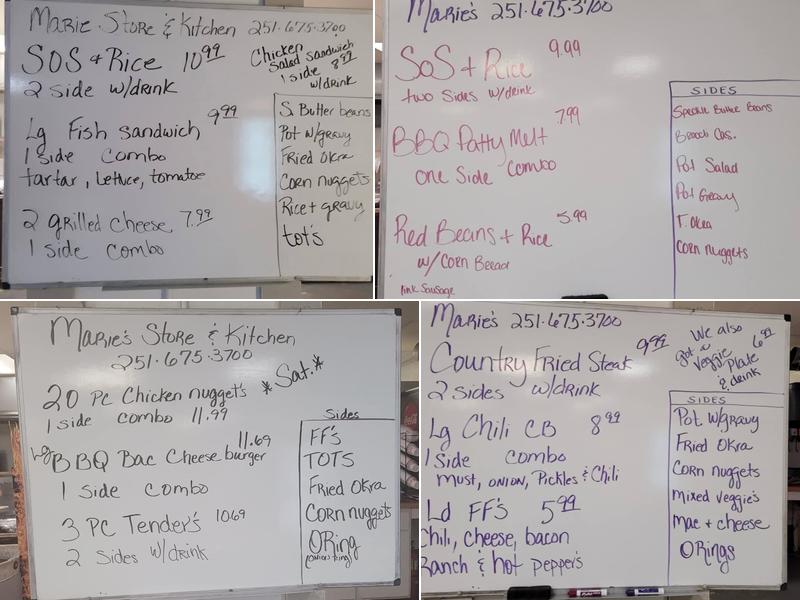 Marie Store & Kitchen 251-675-3700
SOS & Rice 10.99
2 side w/drink
Chicken
Salad sandwich
1 side 8.99
w/drink
Lg Fish sandwich 9.99
1 side combo
tartar, Lettuce, tomatoe
2 grilled cheese 7.99
1 side combo
S. Butter beans
Pot w/gravy
Fried Okra
Corn nuggets
Rice + gravy
tot's
Marie's 251-675-3700
SOS + Rice 9.99
two Sides w/drink
BBQ Patty Melt 7.99
one Side Combo
Red Beans + Rice 5.99
w/ Corn Bread
link Sausage
SIDES
Speckle Butter Beans
Brocc Cas.
Pot Salad
Pot Gravy
F. Okra
Corn Nuggets
Marie's Store & Kitchen
251-675-3700
*Sat.*
20 PC Chicken nugget's
1 side combo 11.99
Lg BBQ Bac Cheese burger 11.69
1 Side Combo
3 PC Tender's 10.69
2 Sides w/drink
Sides
FF's
TOTS
Fried Okra
Corn nuggets
O Ring
(onion ring)
Marie's 251-675-3700
Country Fried Steak 9.99
2 sides w/drink
We also
got a
veggie
Plate 6.99
& drink
Lg Chili CB 8.99
1 Side Combo
must, onion, Pickles & Chili
Ld FF's 5.99
Chili, cheese, bacon
Ranch & hot pepper's
SIDES
Pot w/gravy
Fried Okra
Corn nuggets
Mixed veggie's
Mac + cheese
O Rings